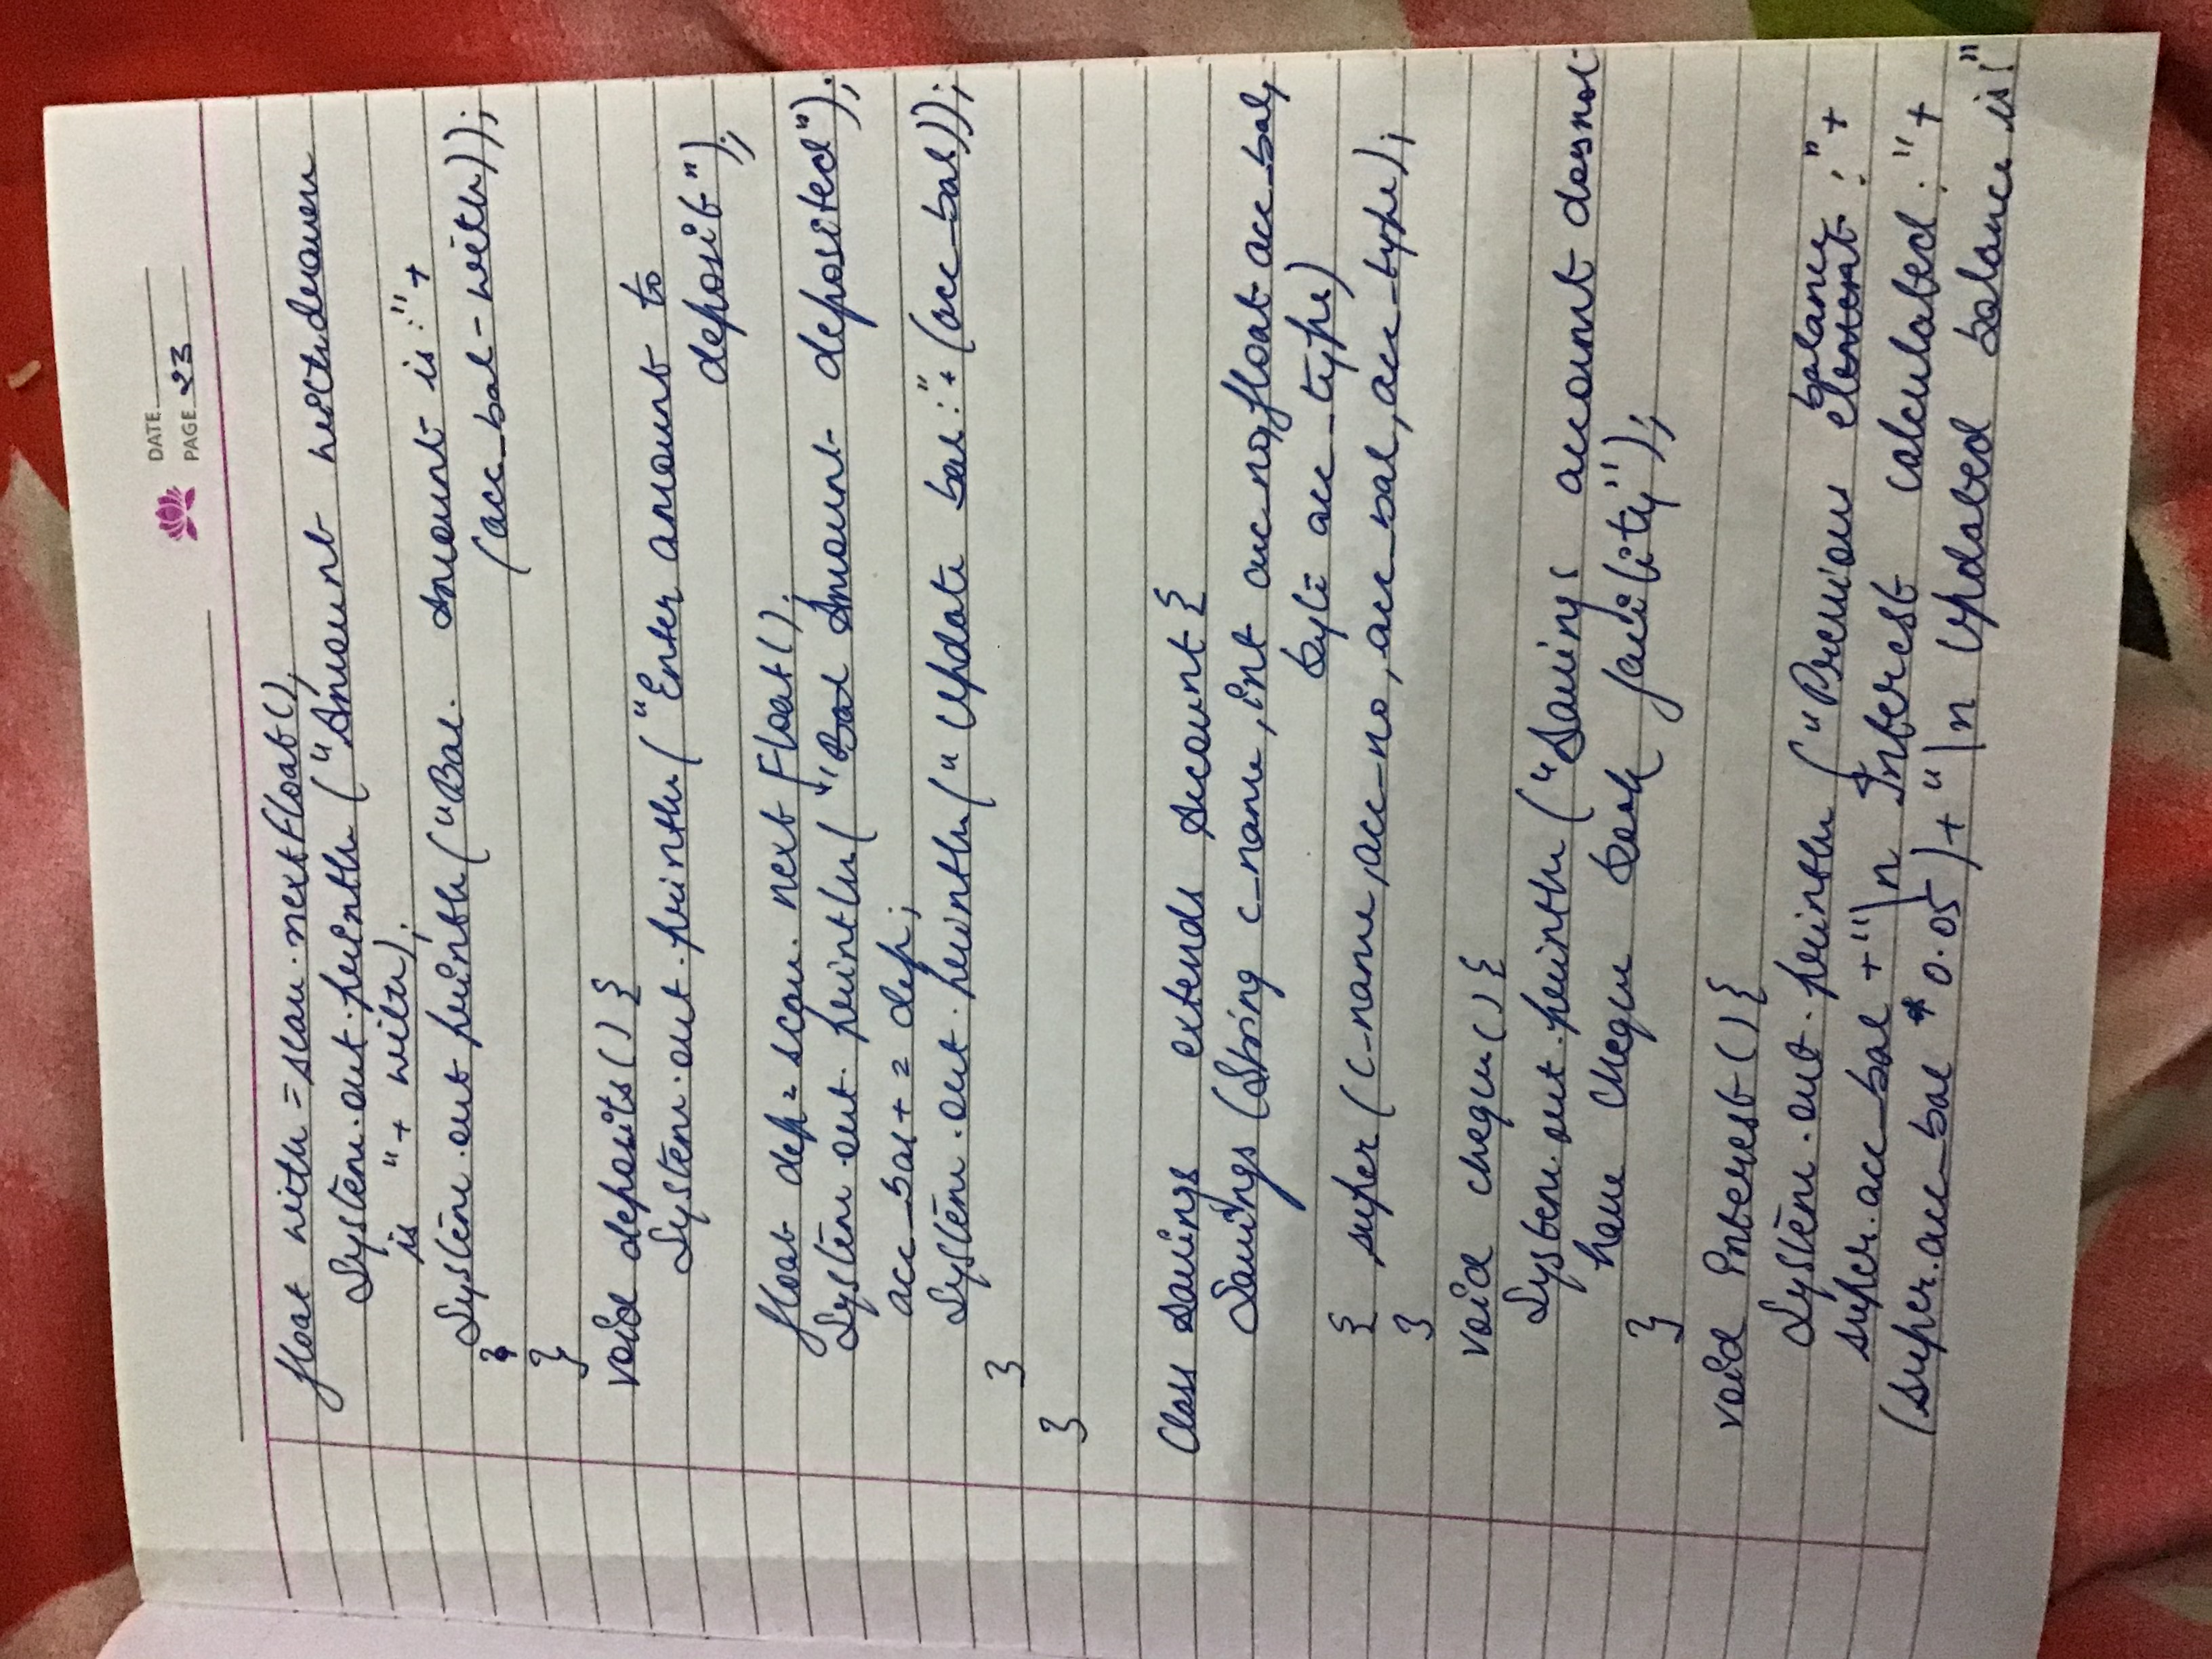 DATE
PAGE 23
float with = scan.nextFloat();
System.out.println("Amount withdrawn
is "+ with);
System.out println("Bal. Amount is:"+
(acc_bal-with));
}
}
void deposits(){
System.out.println("Enter amount to
deposit");
float dep= scan.nextFloat();
System.out.println("Bal Amount deposited");
acc_bal+= dep;
System.out.println("Update bal:"+(acc_bal));
}
}
Class Savings extends Account{
Savings (String c_name, int acc_no, float acc_bal,
byte acc_type)
{ super(c_name, acc_no, acc_bal, acc_type);
}
void cheque(){
System.out.println("Savings account does not
have cheque book facility");
}
void interest(){
System.out.println("Previous element balance :"+
super.acc_bal +"\n Interest calculated:"+
(super.acc_bal *0.05)+"\n Updated balance is:"